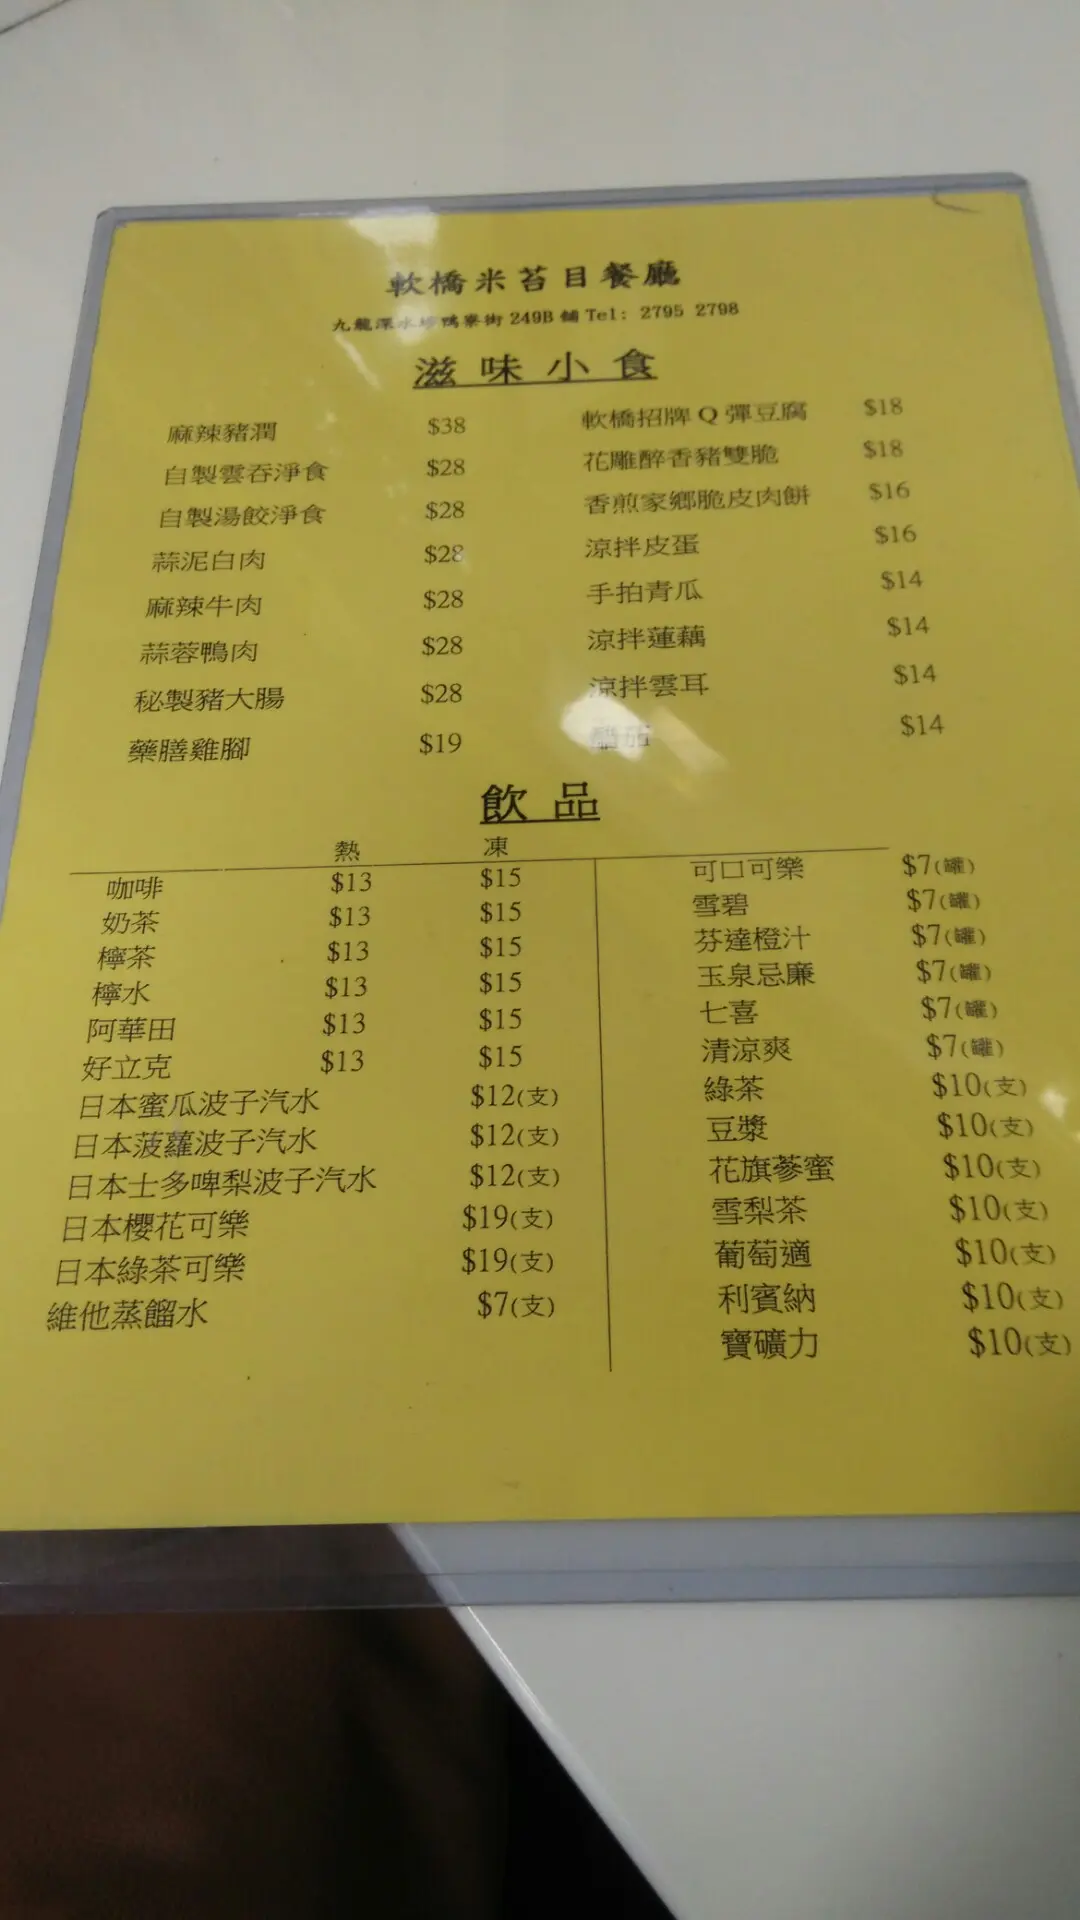 軟橋米苔目餐廳
九龍深水埗鴨寮街 249B 舖 Tel: 2795 2798
滋味小食
麻辣豬潤 $38
自製雲吞淨食 $28
自製湯餃淨食 $28
蒜泥白肉 $28
麻辣牛肉 $28
蒜蓉鴨肉 $28
秘製豬大腸 $28
藥膳雞腳 $19
軟橋招牌 Q 彈豆腐 $18
花雕醉香豬雙脆 $18
香煎家鄉脆皮肉餅 $16
涼拌皮蛋 $16
手拍青瓜 $14
涼拌蓮藕 $14
涼拌雲耳 $14
$14
飲品
熱 凍
咖啡 $13 $15
奶茶 $13 $15
檸茶 $13 $15
檸水 $13 $15
阿華田 $13 $15
好立克 $13 $15
日本蜜瓜波子汽水 $12(支)
日本菠蘿波子汽水 $12(支)
日本士多啤梨波子汽水 $12(支)
日本櫻花可樂 $19(支)
日本綠茶可樂 $19(支)
維他蒸餾水 $7(支)
可口可樂 $7(罐)
雪碧 $7(罐)
芬達橙汁 $7(罐)
玉泉忌廉 $7(罐)
七喜 $7(罐)
清涼爽 $7(罐)
綠茶 $10(支)
豆漿 $10(支)
花旗蔘蜜 $10(支)
雪梨茶 $10(支)
葡萄適 $10(支)
利賓納 $10(支)
寶礦力 $10(支)